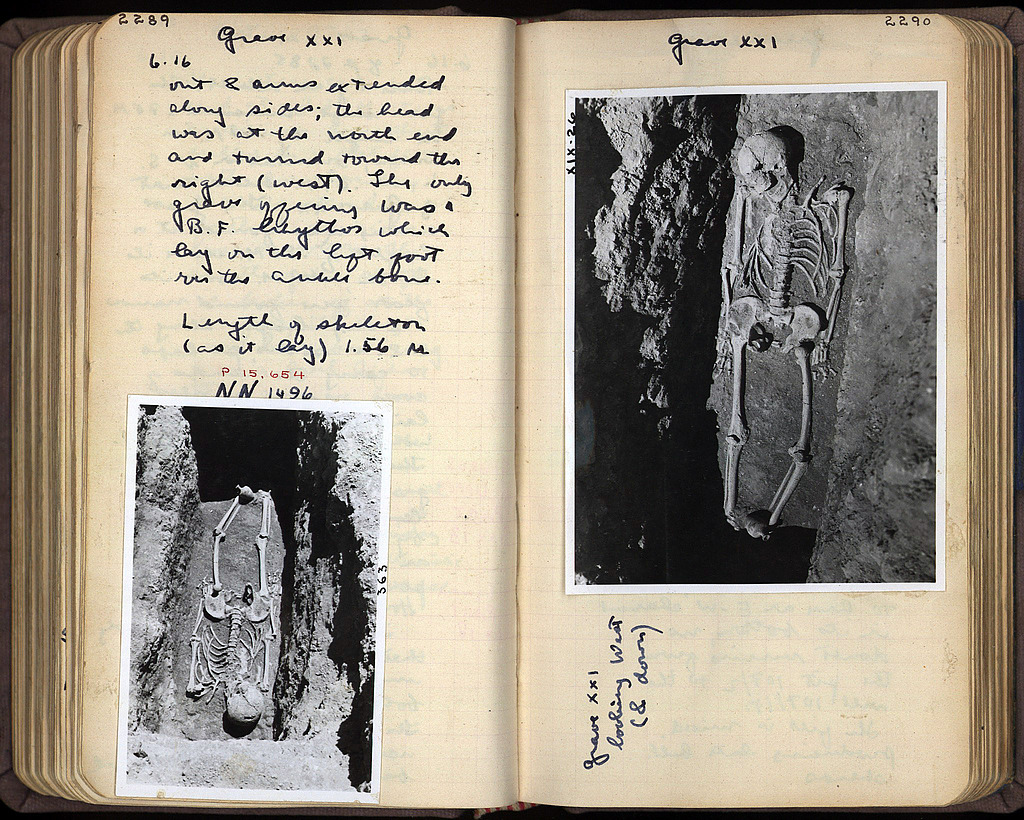 2289
Grave XXI
6.16
out & arms extended
along sides; the head
was at the north end
and turned toward the
right (west). The only
grave offering was a
B.F. lekythos which
lay on the left foot
over the ankle bone.
Length of skeleton
(as it lay) 1.56 m
P 15,654
NN 1496
363
2290
Grave XXI
XIX-26
Grave XXI
looking West
(& down)